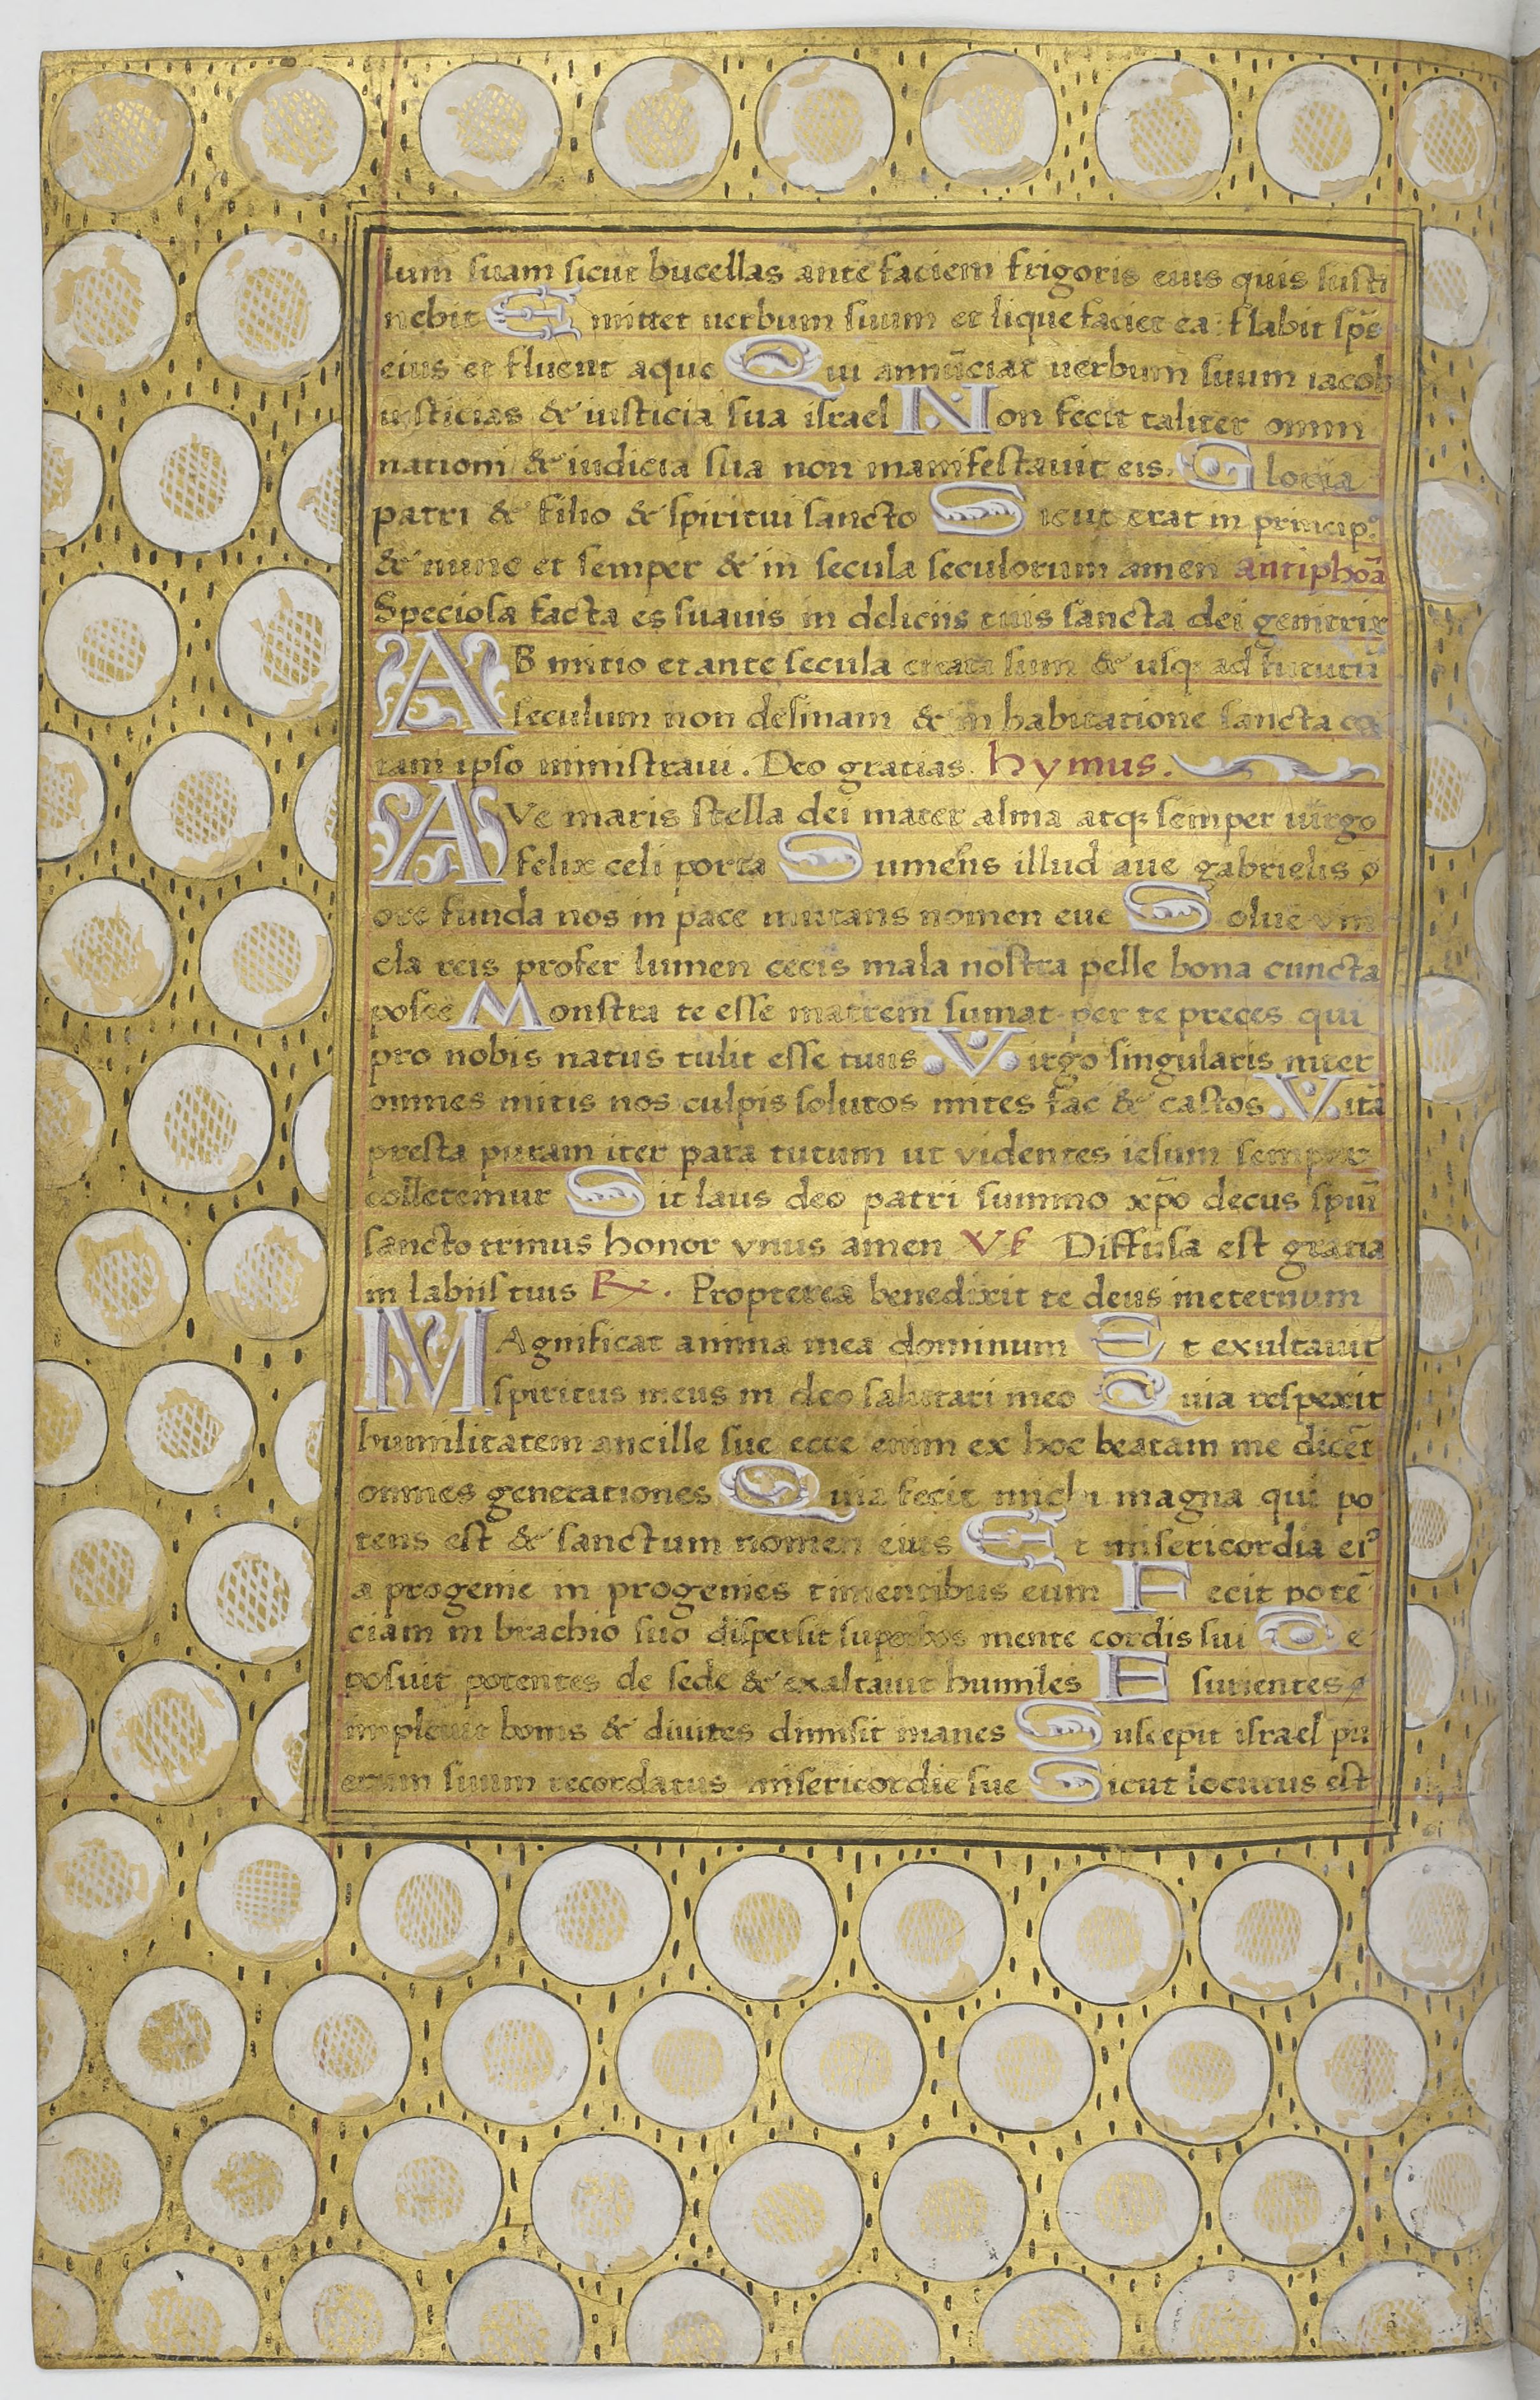 lum suam sicut bucellas ante faciem frigoris eius quis susti
nebit Emittet uerbum suum et liquefaciet ea flabit sp̄s
eius et fluent aque Qui annūciat uerbum suum iacob
iusticias & iusticia sua israel Non fecit taliter omni
nationi & iudicia sua non manifestauit eis. Gloria
patri & filio & spiritui sancto Sicut erat in princip.º
& nunc et semper & in secula seculorum amen antiphōa
Speciosa facta es suauis in deliciis tuis sancta dei genitrix
AB initio et ante secula creata sum & usq; ad futurū
seculum non desinam & in habitatione sancta co
ram ipso ministraui. Deo gratias. hymus.
AVe maris stella dei mater alma atq; semper uirgo
felix celi porta Sumens illud aue gabrielis o
ore funda nos in pace mutans nomen eue Solue vin
cla reis profer lumen cecis mala nostra pelle bona cuncta
posce Monstra te esse matrem sumat per te preces qui
pro nobis natus tulit esse tuus Virgo singularis inter
omnes mitis nos culpis solutos mites fac & castos Vitā
presta puram iter para tutum ut videntes iesum semper
colletemur Sit laus deo patri summo xp̄o decus spiūi
sancto trinus honor vnus amen Vs Diffusa est gratia
in labiis tuis Rx. Propterea benedixit te deus ineternum
MAgnificat anima mea dominum Et exultauit
spiritus meus in deo salutari meo Quia respexit
humilitatem ancille sue ecce enim ex hoc beatam me dicēt
omnes generationes Quia fecit michi magna qui po
tens est & sanctum nomen eius Et misericordia eiꝰ
a progenie in progenies timentibus eum Fecit potē
ciam in brachio suo dispersit superbos mente cordis sui De
posuit potentes de sede & exaltauit humiles Esurientes
impleuit bonis & diuites dimisit inanes Suscepit israel pu
erum suum recordatus misericordie sue Sicut locutus est